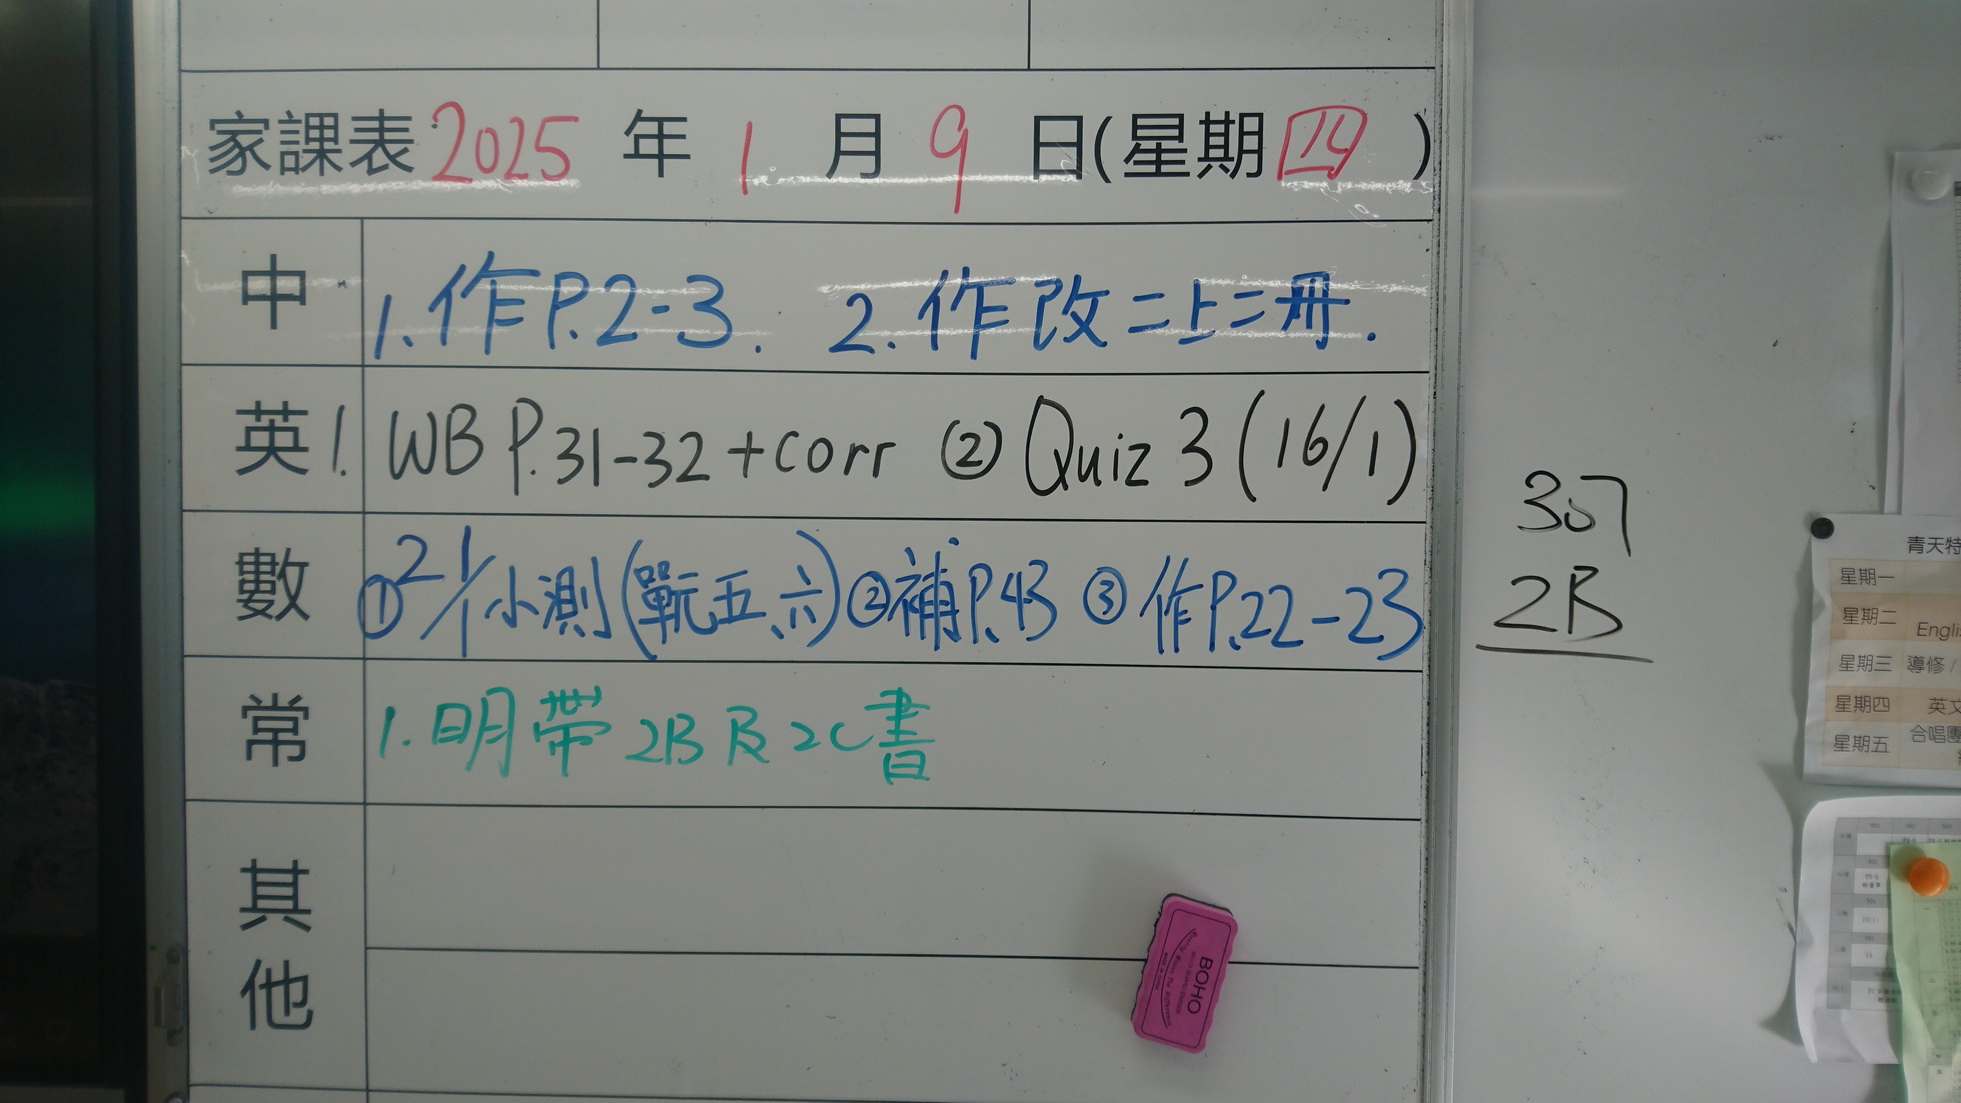 家課表 2025 年 1 月 9 日(星期四)
中 1.作P.2-3. 2.作改二上二冊.
英 1. WB P.31-32 +corr ② Quiz 3 (16/1)
數 ① 21/1 小測(單元五、六) ②補P.43 ③作P.22-23
常 1.明帶2B及2C書
其他
BOHO
307
2B
青天特
星期一
星期二 Englis
星期三 導修/
星期四 英文
星期五 合唱團